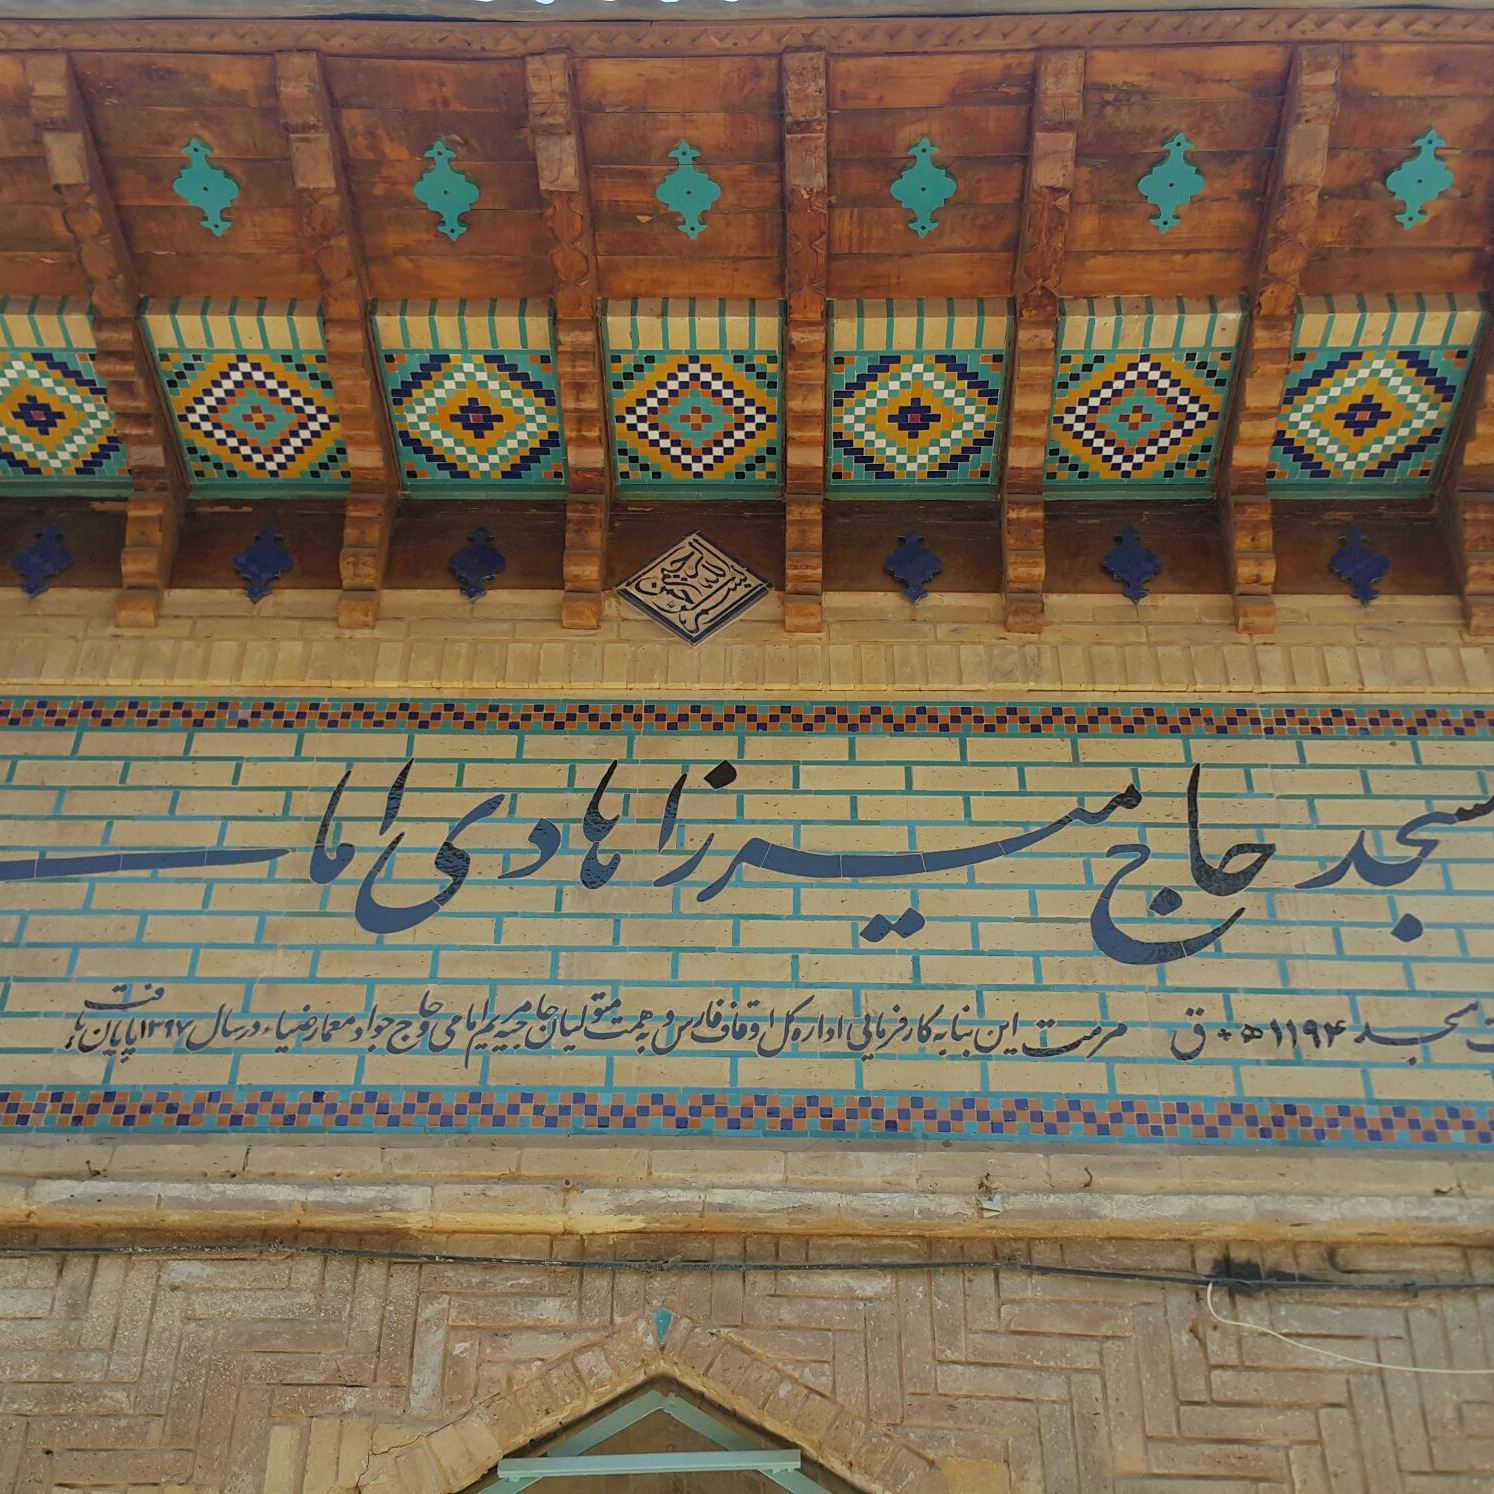 بسم الله الرحمن الرحیم
مسجد حاج میرزا هادی
مسجد ۱۱۹۴ ه * ق مرمت این بنا به کارفرمایی اداره کل اوقاف فارس و به همت متولیان حاجیه مریم امامی و حاج جواد معمار ضیاء در سال ۱۳۹۷ پایان یافت